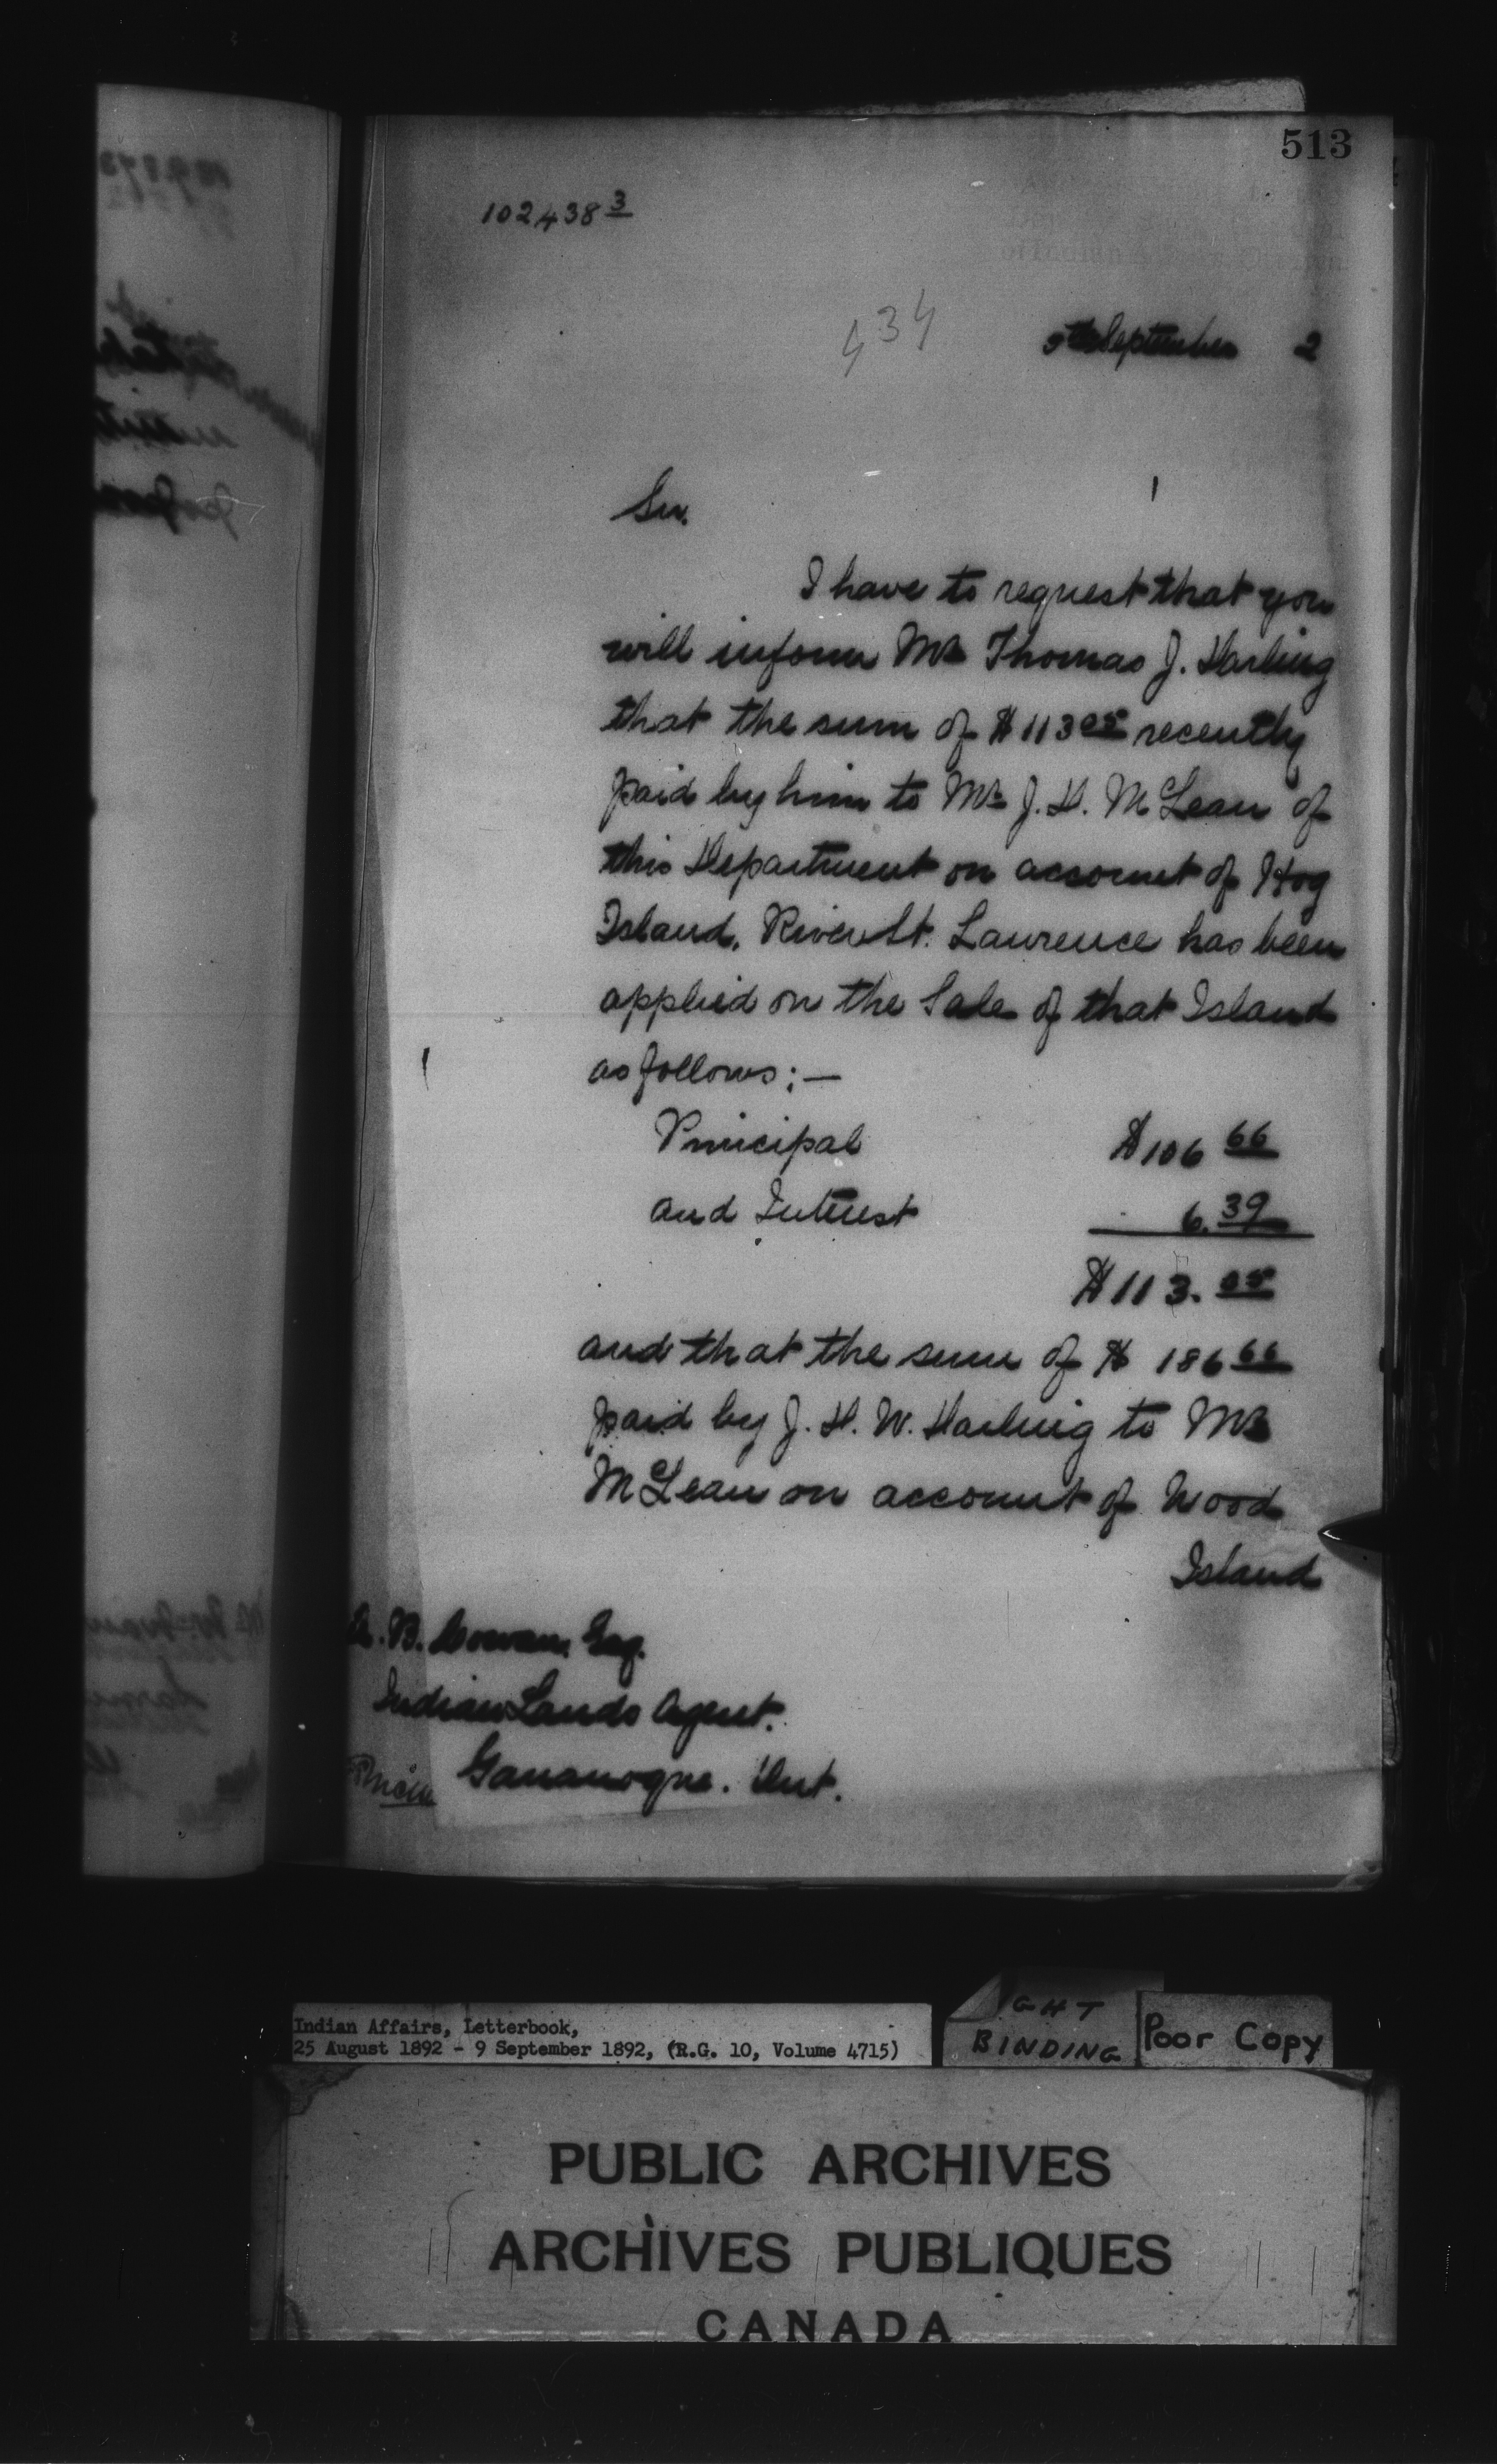 513
102438 3
434
5th September 2
Sir.
I have to request that you
will inform Mr Thomas J. Darling
that the sum of $113 05 recently
paid by him to Mr. J. D. McLean of
this Department on account of Hog
Island, River St. Lawrence has been
applied on the Sale of that Island
as follows:—
Principal $106 66
and Interest 6.39
$113.05
and that the sum of $ 186 66
paid by J. H. W. Darling to Mr
McLean on account of Wood
Island
B. Cowan, Esq.
Indian Lands Agent.
Gananoque. Ont.
Indian Affairs, Letterbook,
25 August 1892 - 9 September 1892, (R.G. 10, Volume 4715)
BINDING
Poor Copy
PUBLIC ARCHIVES
ARCHIVES PUBLIQUES
CANADA